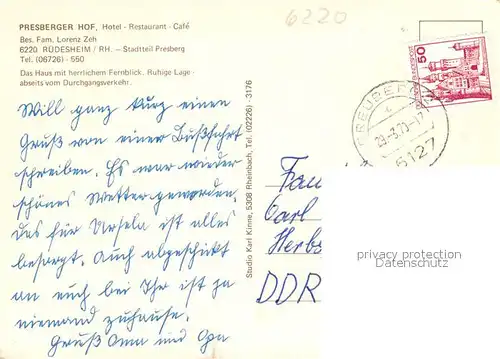 PRESBERGER HOF, Hotel - Restaurant - Café
Bes. Fam. Lorenz Zeh
6220 RÜDESHEIM / RH. — Stadtteil Presberg
Tel. (06726) - 550
Das Haus mit herrlichem Fernblick. Ruhige Lage
abseits vom Durchgangsverkehr.
Will ganz kurz einen
Gruß von einer Busfahrt
schreiben. Es war wieder
schönes Wetter geworden.
Das für Ursela ist alles
besorgt. Auch abgeschickt
an euch bei Ihr ist ja
niemand zuhause.
Gruß Oma und Opa
Studio Karl Kinne, 5308 Rheinbach, Tel. (02226) - 3176
6220
50
DEUTSCHE BUNDESPOST
6127
Carl
Herbs
DDR
privacy protection
Datenschutz